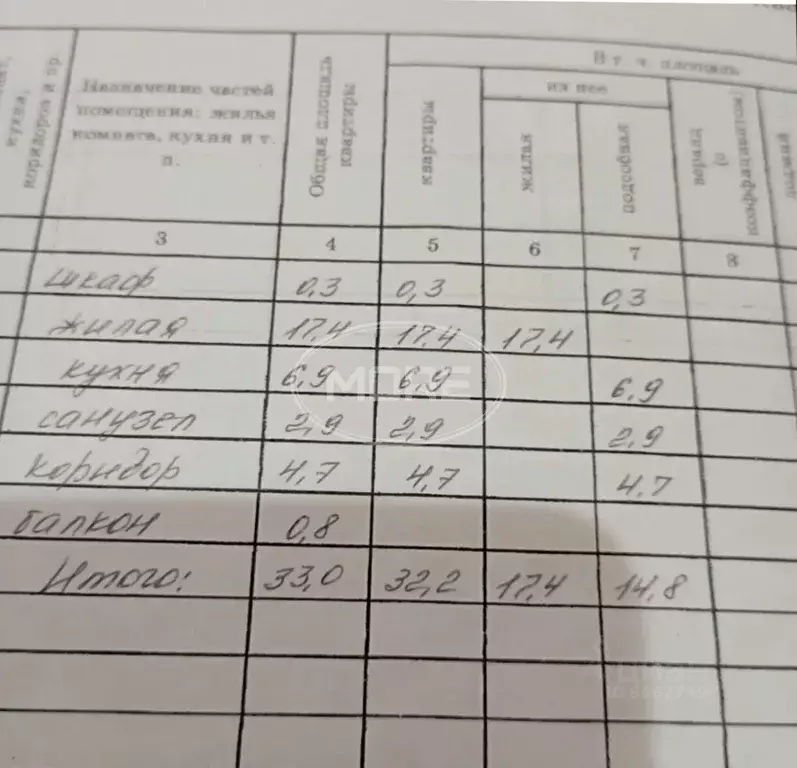 В т. ч. площадь
из нее
кухня,
коридоров и пр.
Назначение частей
помещения: жилья
комната, кухня и т.
п.
Общая площадь
квартиры
квартиры
жилая
подсобная
веранд
(с
коэффициентом)
3 4 5 6 7 8
шкаф 0,3 0,3 0,3
жилая 17,4 17,4 17,4
кухня 6,9 6,9 6,9
санузел 2,9 2,9 2,9
коридор 4,7 4,7 4,7
балкон 0,8
Итого: 33,0 32,2 17,4 14,8
MORE